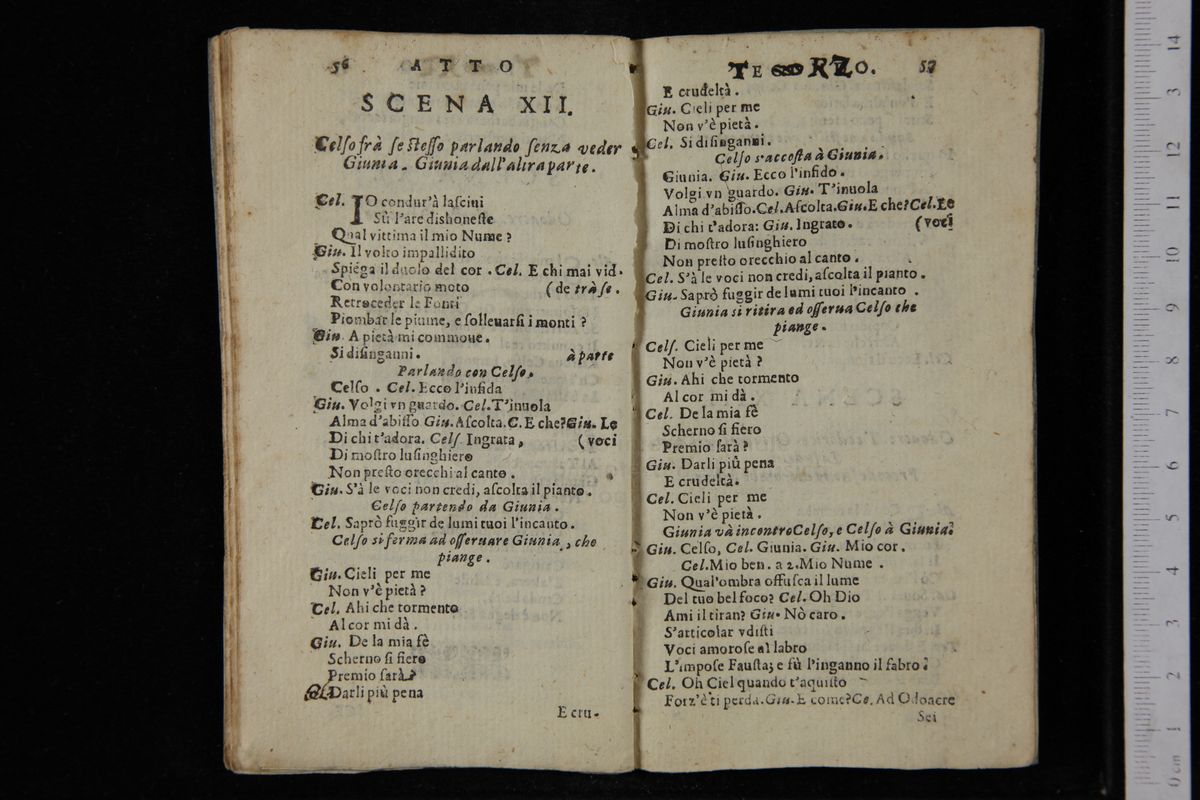 56 ATTO
SCENA XII.
Celso frà se stesso parlando senza veder
Giunia. Giunia dall'altra parte.
Cel. IO condur'à lascini
Sù l'are dishoneste
Qual vittima il mio Nume?
Giu. Il volto impallidito
Spiega il duolo del cor. Cel. E chi mai vid-
Con volontario moto (de trà se.
Retroceder le Fonti
Piombar le piume, e solleuarsi i monti?
Giu. A pietà mi commoue.
Si disinganni. à parte
Parlando con Celso.
Celso. Cel. Ecco l'infida
Giu. Volgi vn guardo. Cel. T'inuola
Alma d'abisso Giu. Ascolta. C. E che? Giu. Le
Di chi t'adora. Cels. Ingrata, (voci
Di mostro lusinghiero
Non presto orecchi al canto.
Giu. S'à le voci non credi, ascolta il pianto.
Celso partendo da Giunia.
Cel. Saprò fuggir de lumi tuoi l'incanto.
Celso si ferma ad osseruare Giunia, che
piange.
Giu. Cieli per me
Non v'è pietà?
Cel. Ahi che tormento
Al cor mi dà.
Giu. De la mia fè
Scherno si fiero
Premio sarà?
Darli più pena
E cru-
TERZO. 57
E crudeltà.
Giu. Cieli per me
Non v'è pietà.
Cel. Si disinganni.
Celso s'accosta à Giunia.
Giunia. Giu. Ecco l'infido.
Volgi vn guardo. Giu. T'inuola
Alma d'abisso. Cel. Ascolta. Giu. E che? Cel. Le
Di chi t'adora: Giu. Ingrato. (voci
Di mostro lusinghiero
Non presto orecchio al canto.
Cel. S'à le voci non credi, ascolta il pianto.
Giu. Saprò fuggir de lumi tuoi l'incanto.
Giunia si ritira ed osserua Celso che
piange.
Cels. Cieli per me
Non v'è pietà?
Giu. Ahi che tormento
Al cor mi dà.
Cel. De la mia fè
Scherno si fiero
Premio sarà?
Giu. Darli più pena
E crudeltà.
Cel. Cieli per me
Non v'è pietà.
Giunia và incontro Celso, e Celso à Giunia.
Giu. Celso, Cel. Giunia. Giu. Mio cor.
Cel. Mio ben. a 2. Mio Nume.
Giu. Qual'ombra offusca il lume
Del tuo bel foco? Cel. Oh Dio
Ami il tiran? Giu. Nò caro.
S'articolar vdisti
Voci amorose al labro
L'impose Fausta; e fù l'inganno il fabro.
Cel. Oh Ciel quando t'aquisto
Forz'è ti perda. Giu. E come? Ce. Ad Odoacre
Sei